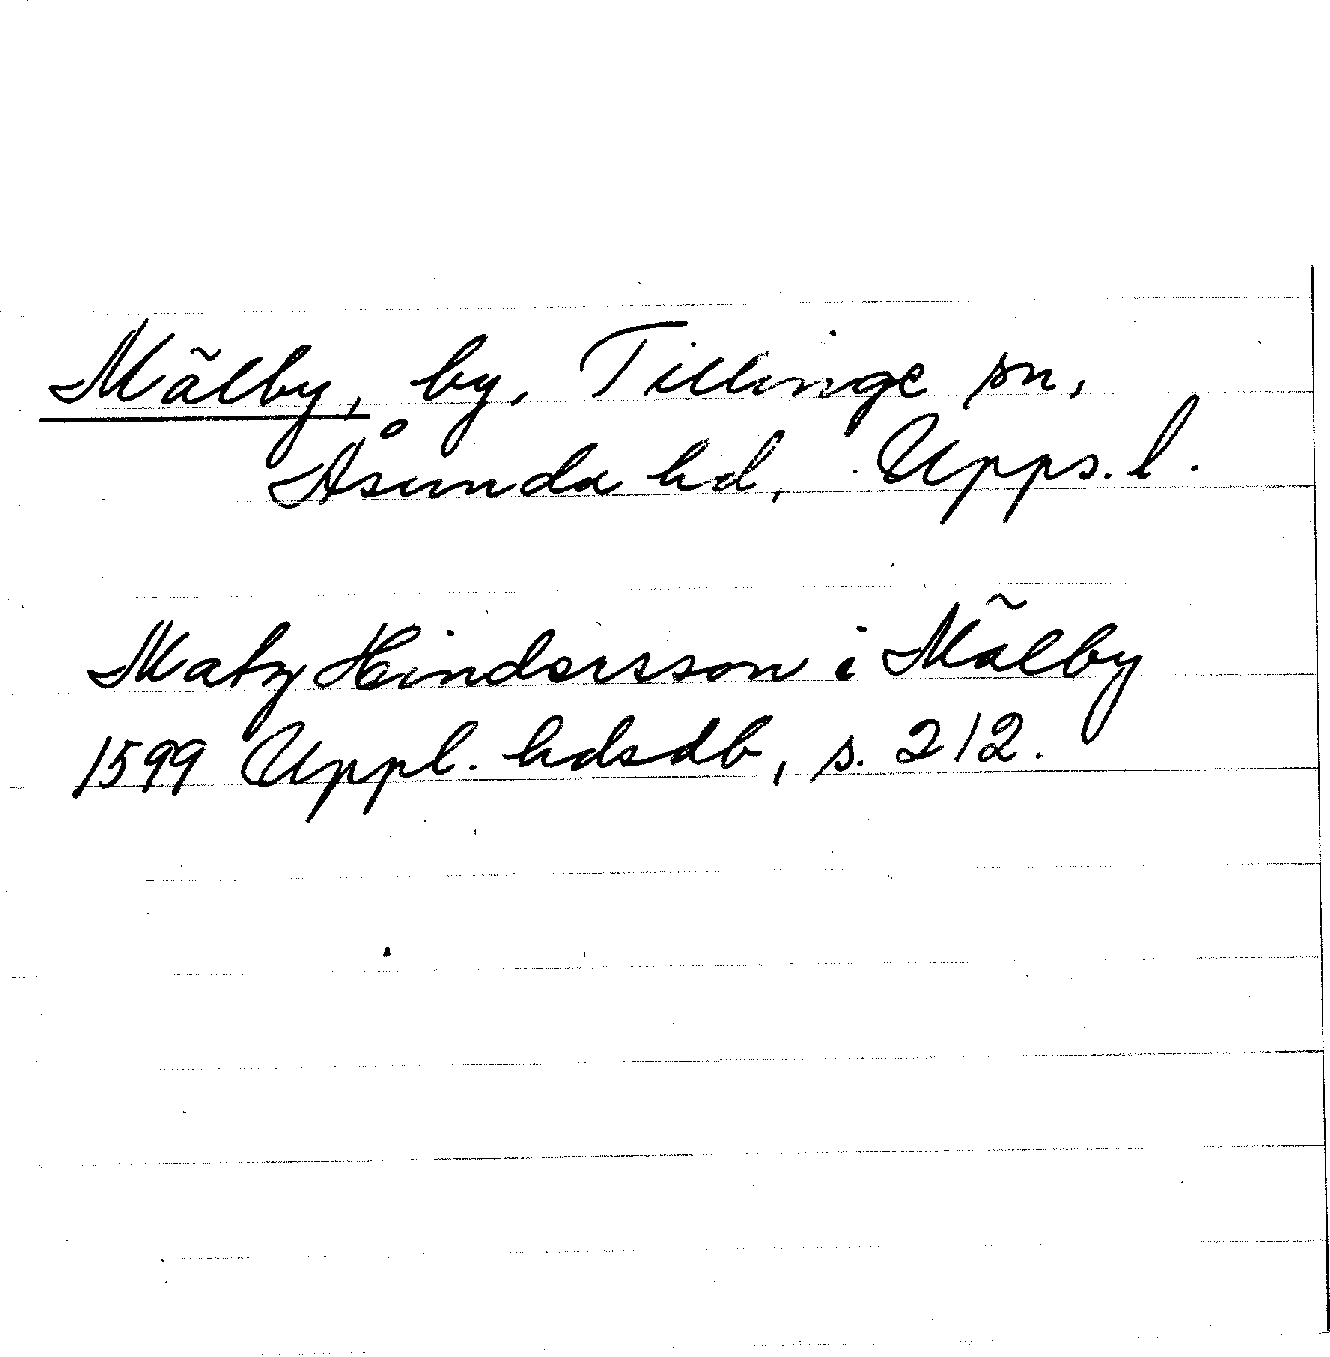 Mãlby, by, Tillinge sn,
Åsunda hd, Upps. l.
Matz Hindersson i Mãlby
1599 Uppl. hdsdb, s. 212.